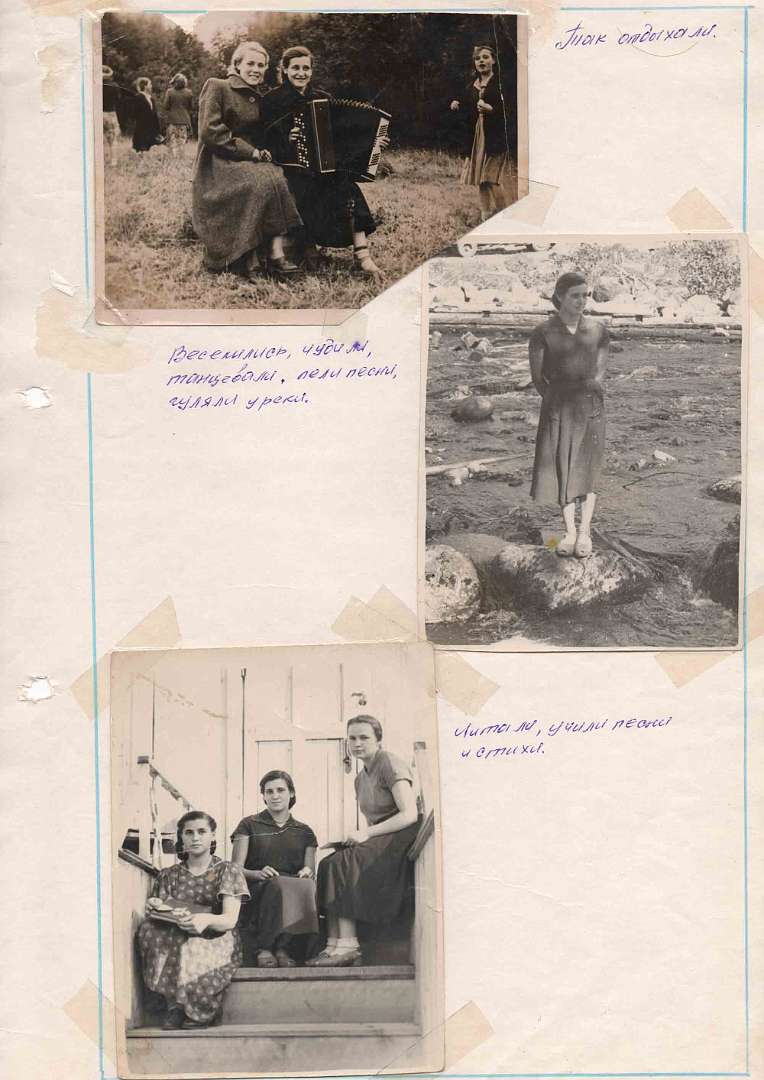 Так отдыхали.
Веселились, чудили,
танцевали, пели песни,
гуляли у реки.
Читали, учили песни
и стихи.